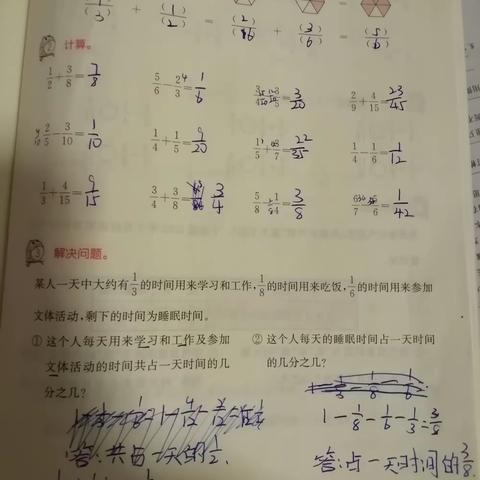 (1)/(3) + (1)/(2) = (2)/(6) + (3)/(6) = (5)/(6)
2 计算。
1/2+3/8=7/8 5/6-2/3=1/6 3/20 2/9+4/15=23/45
2/5-3/10=1/10 1/4+1/5=9/20 22/35 1/4-1/6=1/12
1/3+4/15=9/15 3/4+3/8= 3/4 5/8-1/4=3/8 6/7-5/6=1/42
3 解决问题。
某人一天中大约有1/3的时间用来学习和工作,1/8的时间用来吃饭,1/6的时间用来参加
文体活动,剩下的时间为睡眠时间。
① 这个人每天用来学习和工作及参加
文体活动的时间共占一天时间的几
分之几?
② 这个人每天的睡眠时间占一天时间
的几分之几?
答:共占一天的1/2.
1-1/8-1/6-1/3=3/8
答:占一天时间的3/8